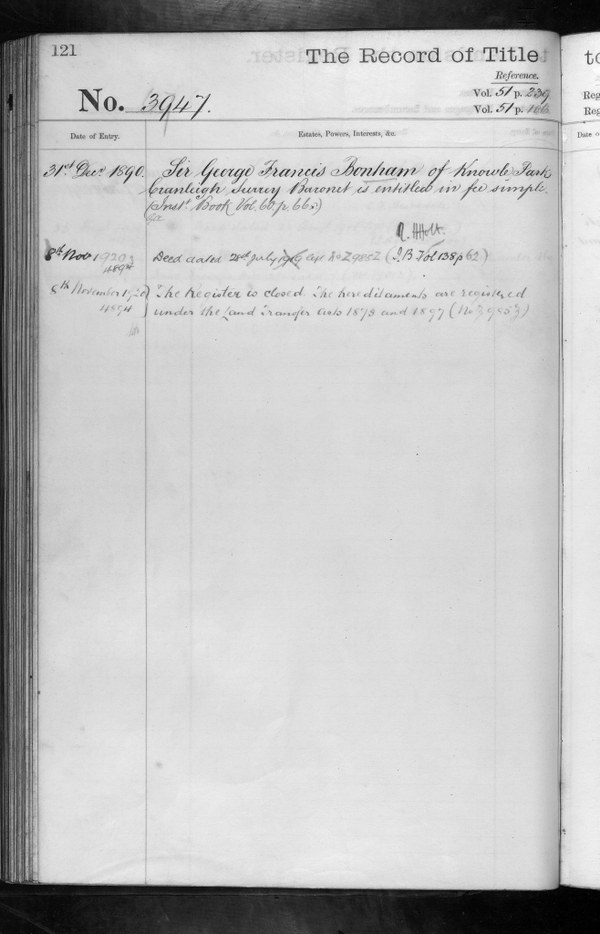 121
The Record of Title
to
Reference.
No. 3947.
Vol. 51 p. 239
Vol. 51 p. 166
Reg
Reg
Date of Entry.
Estates, Powers, Interests, &c.
Date o
31st Decr 1890.
Sir George Francis Bonham of Knowle Park
Cranleigh Surrey Baronet is entitled in fee simple.
(Inst. Book Vol. 60. p. 66.)
R. H. Holt.
8th Nov 1920
4894
Deed dated 28th July 1919 (I.B. Vol 138 p 62)
8th November 1920
4894
The Register is closed. The hereditaments are registered
under the Land Transfer Acts 1875 and 1897